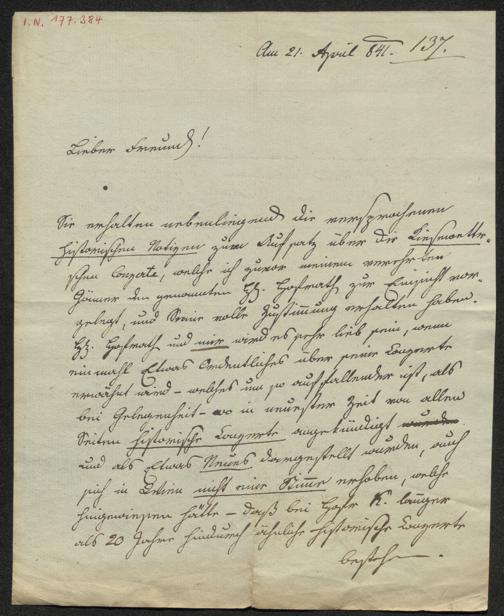 I.N. 177.384
Am 21. April 841. 137.
Lieber Freund!
Sie erhalten nebenliegend die versprochenen
historischen Notizen zum Aufsatz über die Kiesewetter-
schen Conzerte, welche ich zuvor meinem verehrten
Gönner dem genannten H. Hofrath zur Einsicht vor-
gelegt, und Seine volle Zustimmung erhalten haben.
H. Hofrath und mir wird es sehr lieb sein, wenn
einmahl Etwas Ordentliches über seine Conzerte
erwähnt wird – welches um so auffallender ist, als
bei Gelegenheit – wo in neuester Zeit von allen
Seiten historische Conzerte angekündigt wurden
und als Etwas Neues dargestellt wurden, auch
sich in Wien nicht eine Stimme erhoben, welche
hingewiesen hätte – daß bei Hofr K. länger
als 20 Jahre hindurch ähnliche historische Conzerte
bestehen.